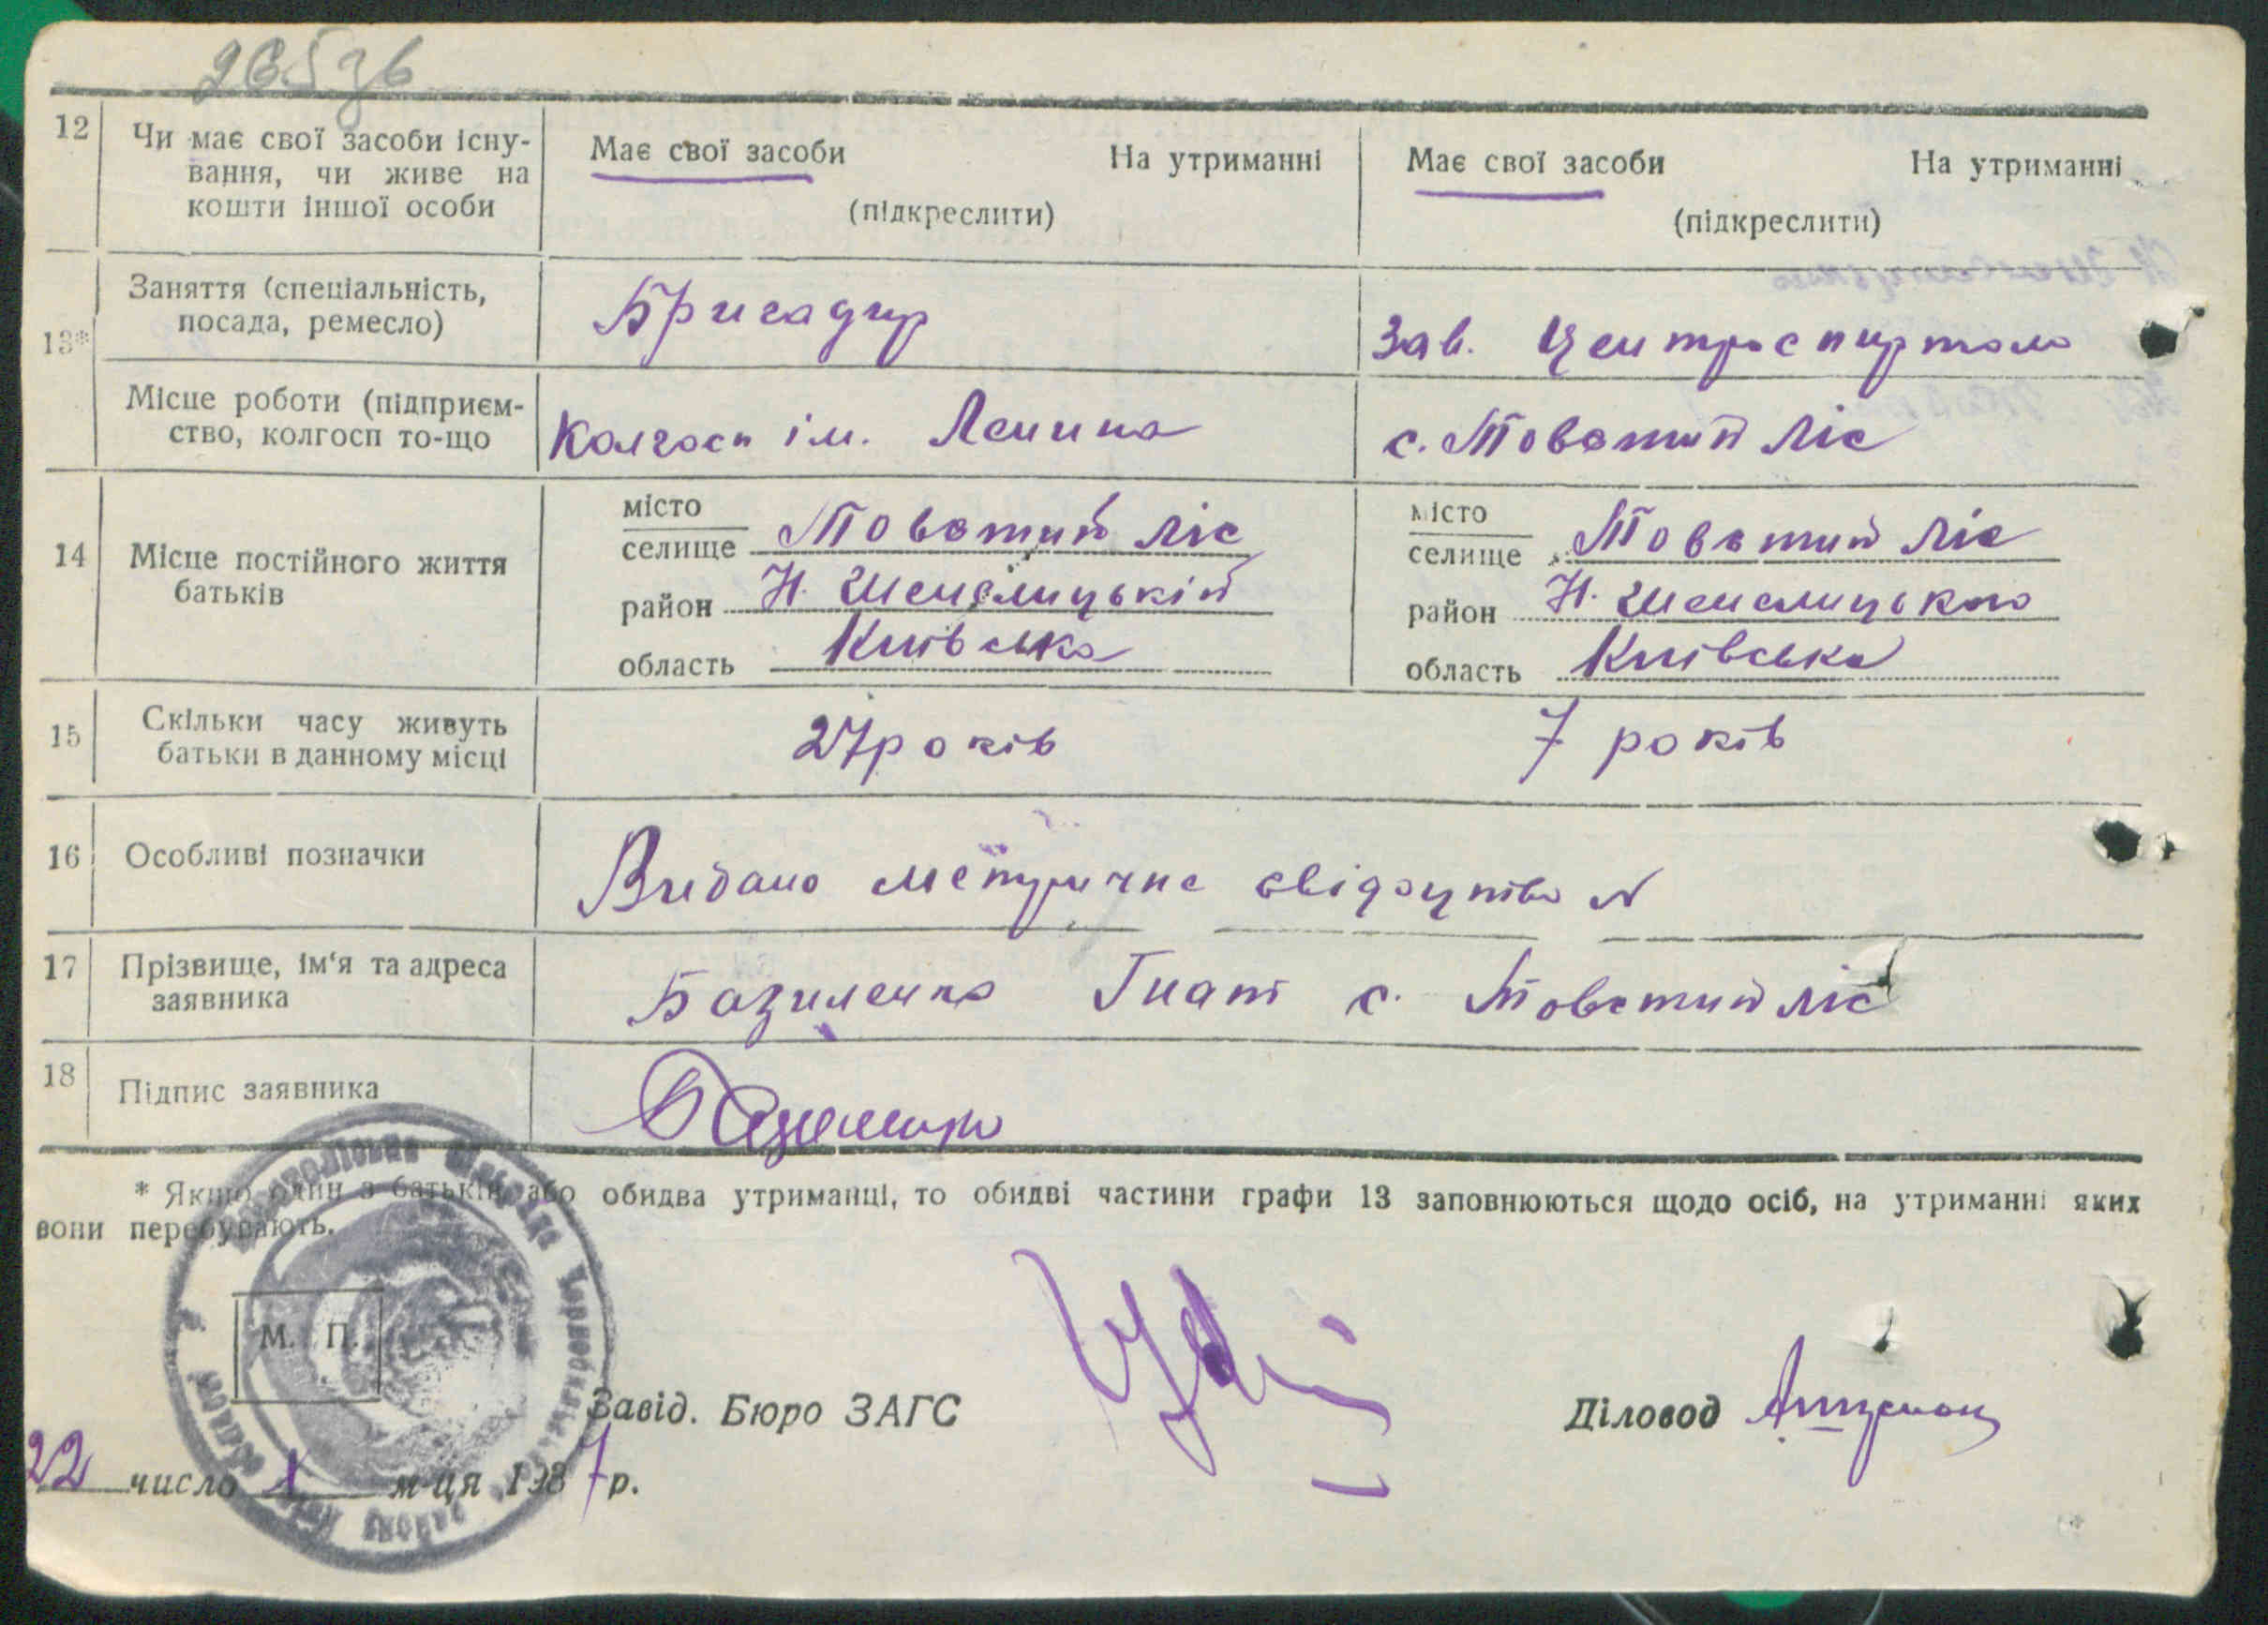 12 Чи має свої засоби існу-
вання, чи живе на
кошти іншої особи
Має свої засоби На утриманні
(підкреслити)
Має свої засоби На утриманні
(підкреслити)
13*
Заняття (спеціальність,
посада, ремесло)
Бригадир
Зав. Центроспиртом
Місце роботи (підприєм-
ство, колгосп то-що
Колгосп ім. Леніна
с. Товстий Ліс
14 Місце постійного життя
батьків
місто
селище Товстий Ліс
район Н. Шепелицькій
область Київська
місто
селище Товстий Ліс
район Н. Шепелицького
область Київська
15 Скільки часу живуть
батьки в данному місці
27 років
7 років
16 Особливі позначки
Видано метричне свідоцтво N
17 Прізвище, ім'я та адреса
заявника
Базиленко Гнат с. Товстий Ліс
18 Підпис заявника
* Якщо один з батьків, або обидва утриманці, то обидві частини графи 13 заповнюються щодо осіб, на утриманні яких
вони перебувають.
М. П.
Завід. Бюро ЗАГС
Діловод
22 число 1 м-ця 1937 р.